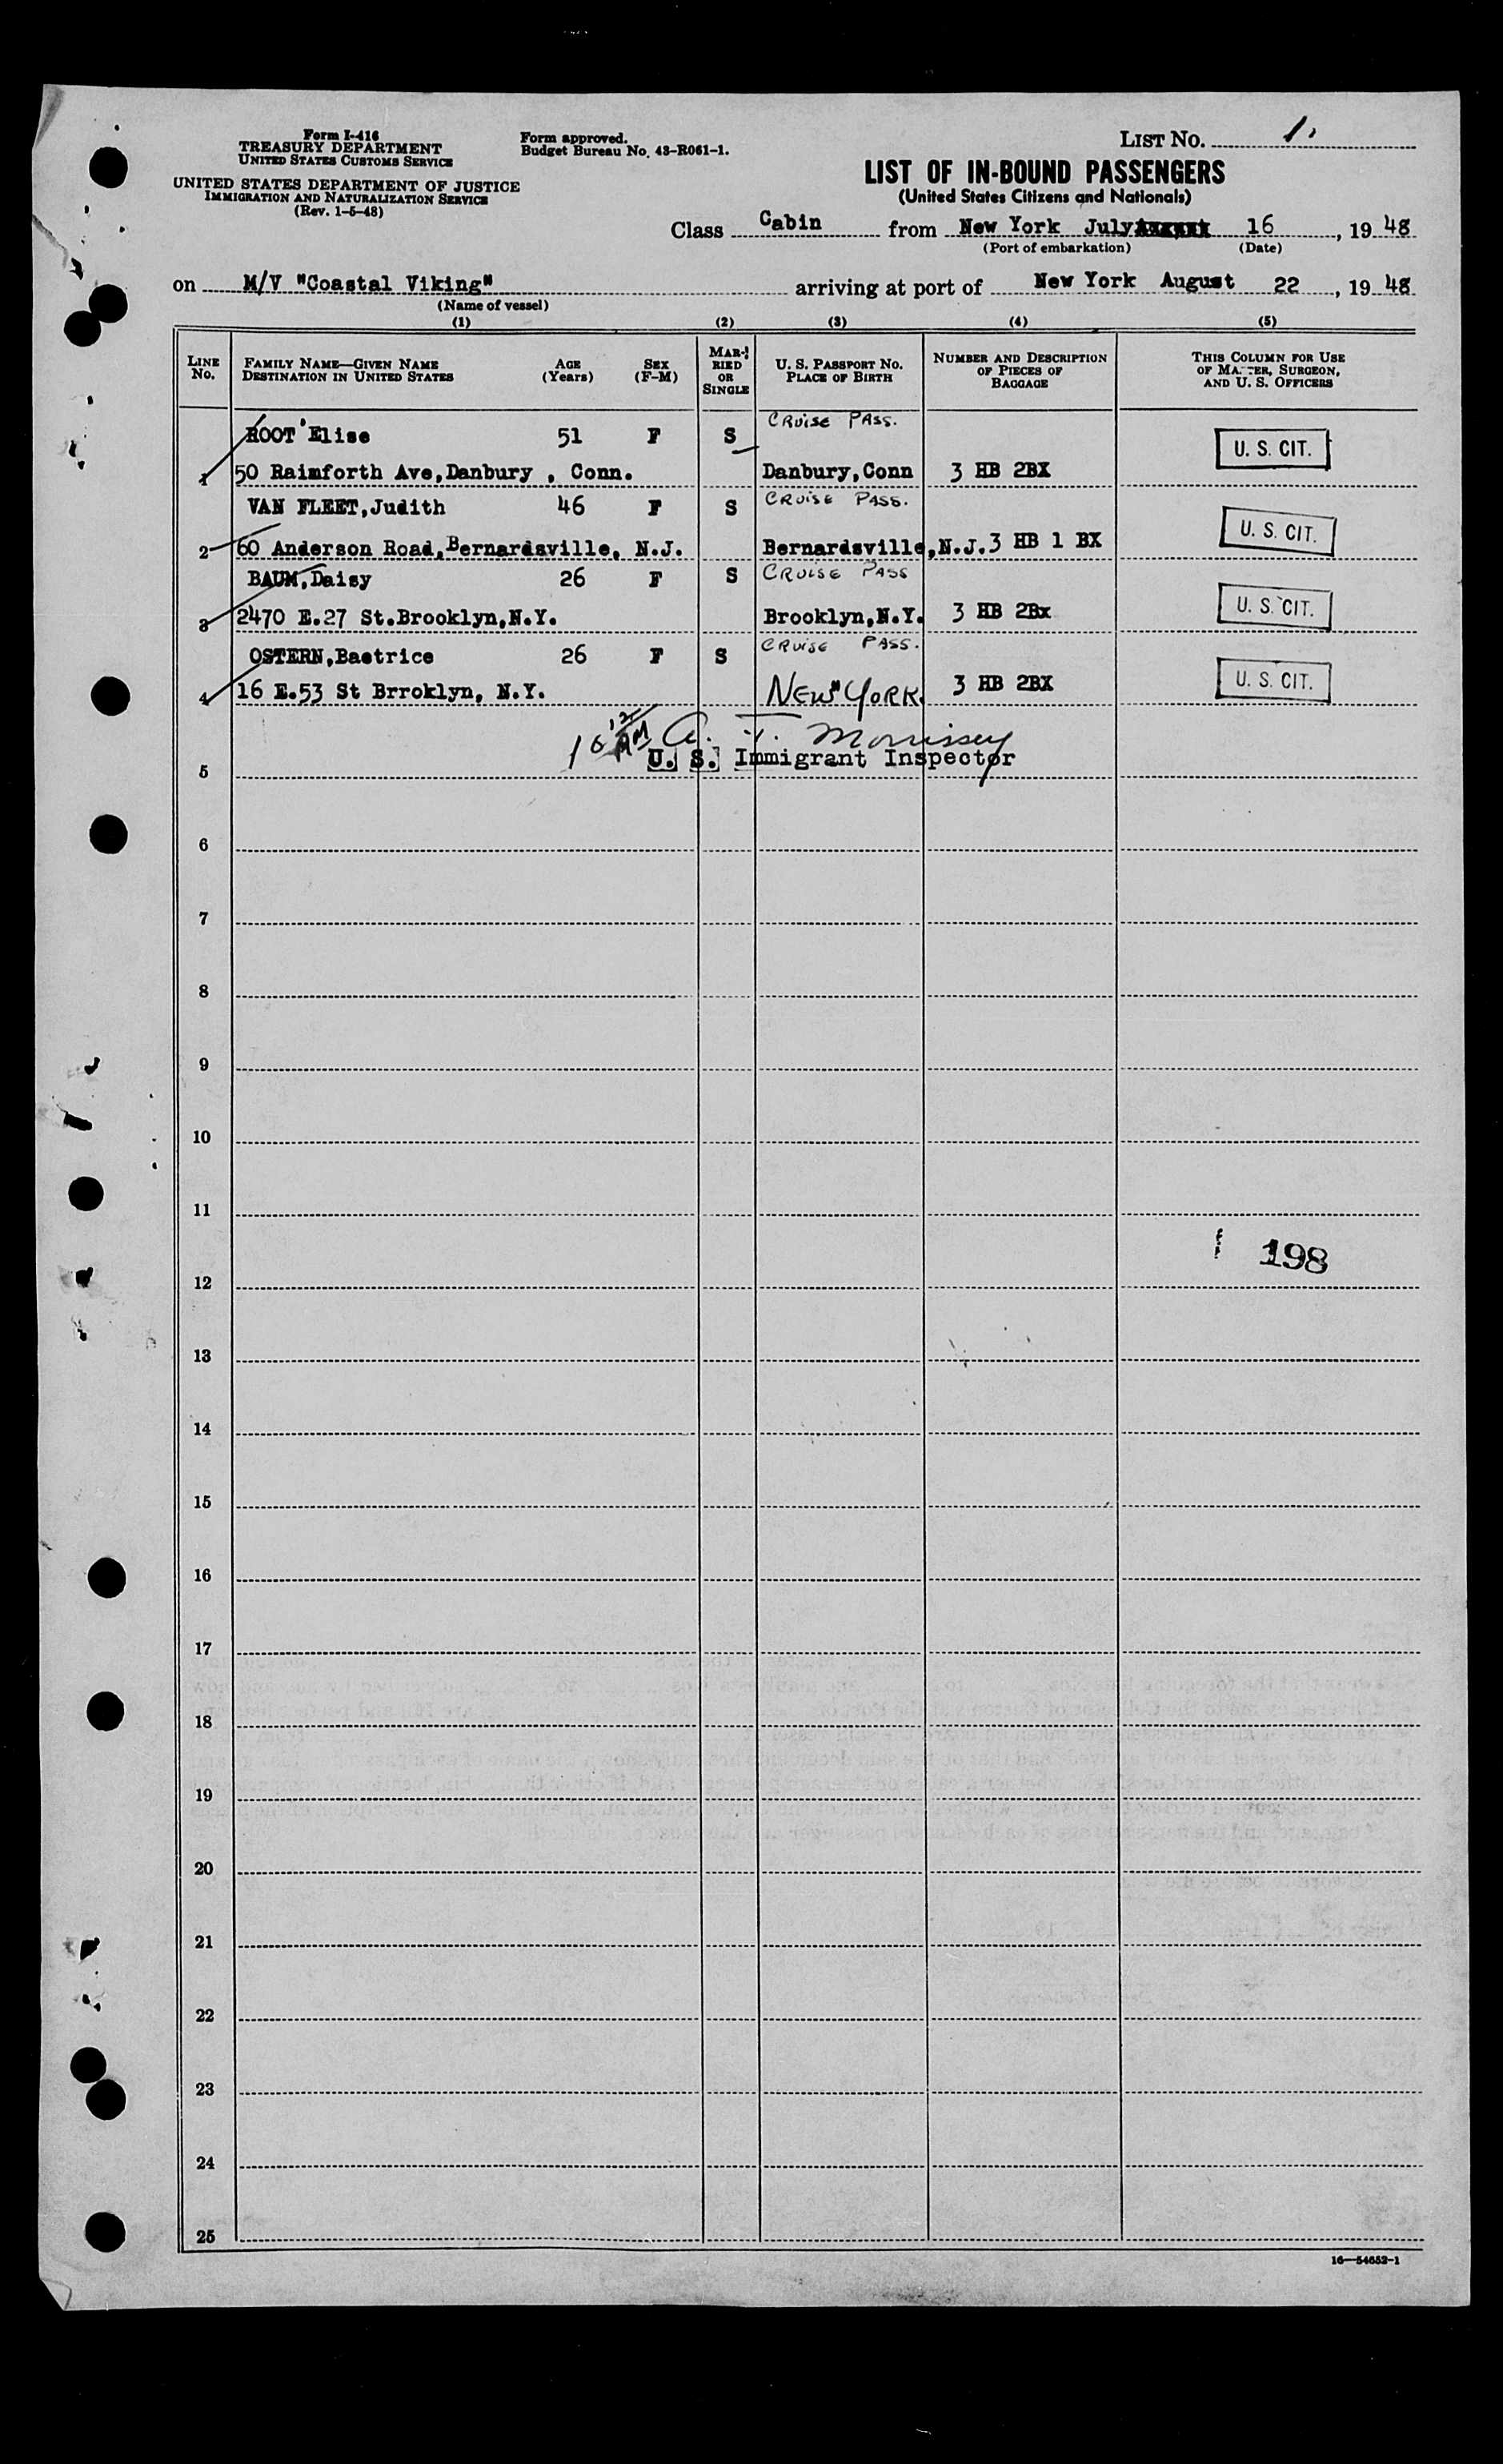 Form I-416
TREASURY DEPARTMENT
UNITED STATES CUSTOMS SERVICE
UNITED STATES DEPARTMENT OF JUSTICE
IMMIGRATION AND NATURALIZATION SERVICE
(Rev. 1-5-48)
Form approved.
Budget Bureau No. 43-R061-1.
LIST No. 1.
LIST OF IN-BOUND PASSENGERS
(United States Citizens and Nationals)
Class Cabin from New York July 16, 1948
(Port of embarkation) (Date)
on M/V "Coastal Viking" arriving at port of New York August 22, 1948
(Name of vessel)
(1) (2) (3) (4) (5)
LINE No. FAMILY NAME—GIVEN NAME DESTINATION IN UNITED STATES AGE (Years) SEX (F-M) MARRIED OR SINGLE U. S. PASSPORT No. PLACE OF BIRTH NUMBER AND DESCRIPTION OF PIECES OF BAGGAGE THIS COLUMN FOR USE OF MASTER, SURGEON, AND U. S. OFFICERS
CRUISE PASS.
ROOT Elise 51 F S U. S. CIT.
1 50 Raimforth Ave,Danbury , Conn. Danbury,Conn 3 HB 2BX
VAN FLEET,Judith 46 F S CRUISE PASS.
2 60 Anderson Road,Bernardsville, N.J. Bernardsville,N.J. 3 HB 1 BX U. S. CIT.
BAUM,Daisy 26 F S CRUISE PASS
3 2470 E.27 St.Brooklyn,N.Y. Brooklyn,N.Y. 3 HB 2Bx U. S. CIT.
OSTERN,Baetrice 26 F S CRUISE PASS.
4 16 E.53 St Brroklyn, N.Y. NEW YORK. 3 HB 2BX U. S. CIT.
A. T. Morrissey
5 U. S. Immigrant Inspector
6
7
8
9
10
11
198
12
13
14
15
16
17
18
19
20
21
22
23
24
25
16—54652-1